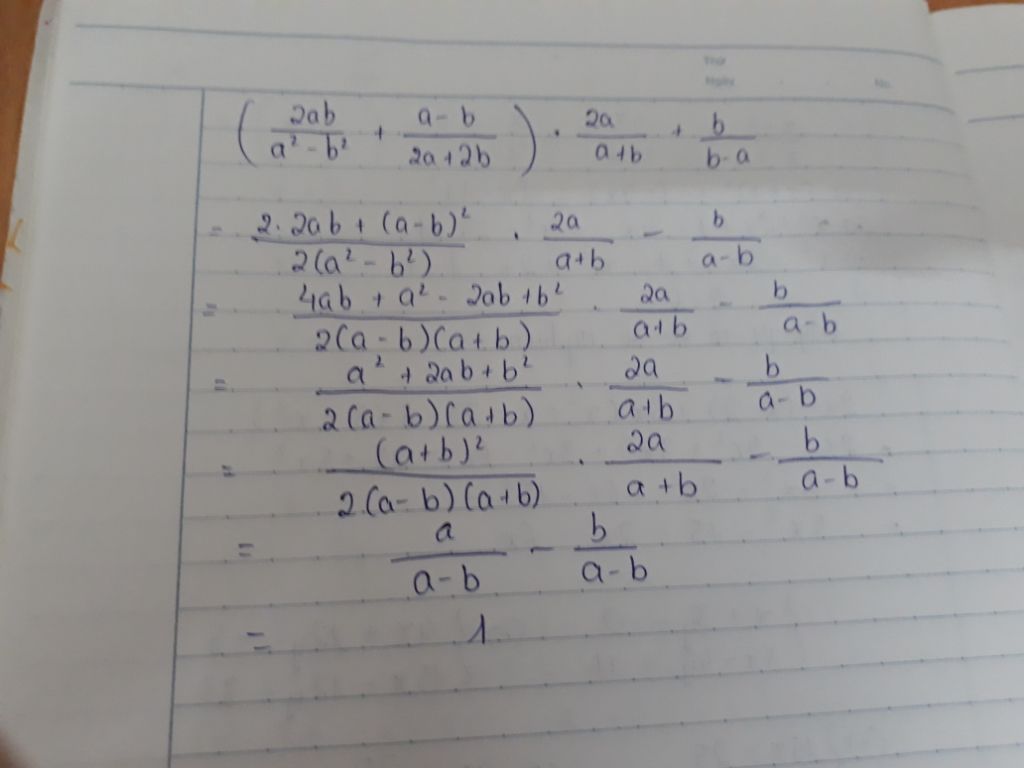 Thứ
Ngày No.
( 2ab/(a² - b²) + (a - b)/(2a + 2b) ) . 2a/(a+b) + b/(b - a)
= (2. 2ab + (a-b)²)/(2(a² - b²)) . 2a/(a+b) - b/(a-b)
= (4ab + a² - 2ab + b²)/(2(a-b)(a+b)) . 2a/(a+b) - b/(a-b)
= (a² + 2ab + b²)/(2(a-b)(a+b)) . 2a/(a+b) - b/(a-b)
= (a+b)²/(2(a-b)(a+b)) . 2a/(a+b) - b/(a-b)
= a/(a-b) - b/(a-b)
= 1